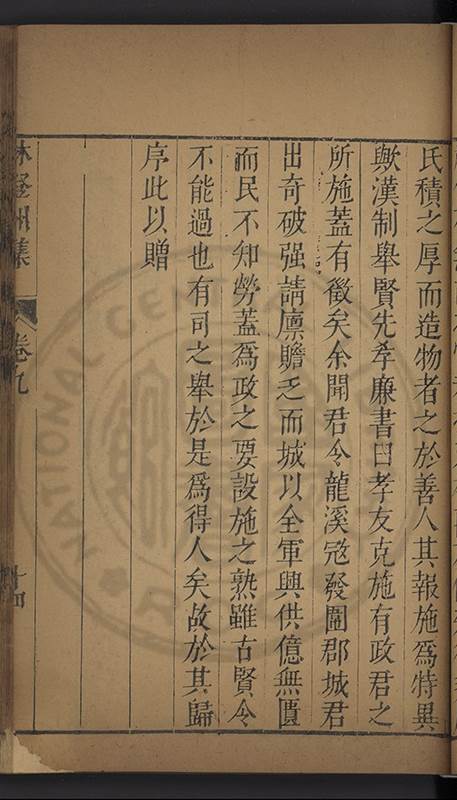 氏積之厚而造物者之於善人其報施爲特異
歟漢制舉賢先孝廉書曰孝友克施有政君之
所施蓋有徵矣余聞君令龍溪冦發圍郡城君
出奇破强請廩贍乏而城以全軍興供億無匱
而民不知勞蓋爲政之要設施之熟雖古賢令
不能過也有司之舉於是爲得人矣故於其歸
序此以贈
林登州集
卷九
十四